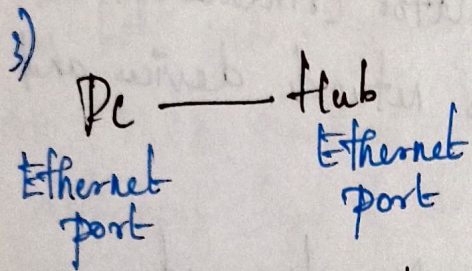 3)
Pc — Hub
Ethernet port
Ethernet port